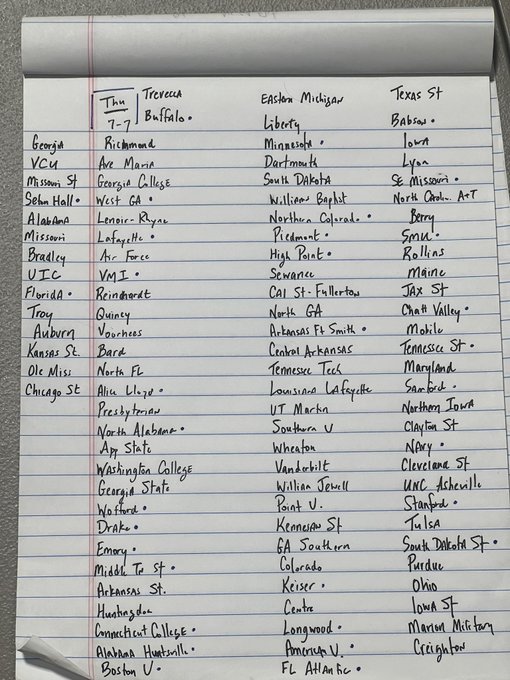 Thu
7-7
Georgia
VCU
Missouri St
Seton Hall •
Alabama
Missouri
Bradley
UIC
Florida •
Troy
Auburn
Kansas St.
Ole Miss
Chicago St
Trevecca
Buffalo •
Richmond
Ave Maria
Georgia College
West GA •
Lenoir-Rhyne
Lafayette •
Air Force
VMI •
Reinhardt
Quincy
Voorhees
Bard
North FL
Alice Lloyd •
Presbyterian
North Alabama •
App State
Washington College
Georgia State
Wofford •
Drake •
Emory •
Middle Tn St •
Arkansas St.
Huntingdon
Connecticut College •
Alabama Huntsville •
Boston U •
Eastern Michigan
Liberty
Minnesota •
Dartmouth
South Dakota
Williams Baptist
Northern Colorado •
Piedmont •
High Point •
Sewanee
Cal St-Fullerton
North GA
Arkansas Ft Smith •
Central Arkansas
Tennessee Tech
Louisiana Lafayette
UT Martin
Southern U
Wheaton
Vanderbilt
William Jewell
Point U.
Kennesaw St
GA Southern
Colorado
Keiser •
Centre
Longwood •
American U. •
FL Atlantic •
Texas St
Babson •
Iowa
Lyon
SE Missouri •
North Carolina A+T
Berry
SMU •
Rollins
Maine
Jax St
Chatt Valley •
Mobile
Tennessee St •
Maryland
Samford •
Northern Iowa
Clayton St
Navy •
Cleveland St
UNC Asheville
Stanford •
Tulsa
South Dakota St •
Purdue
Ohio
Iowa St
Marion Military
Creighton